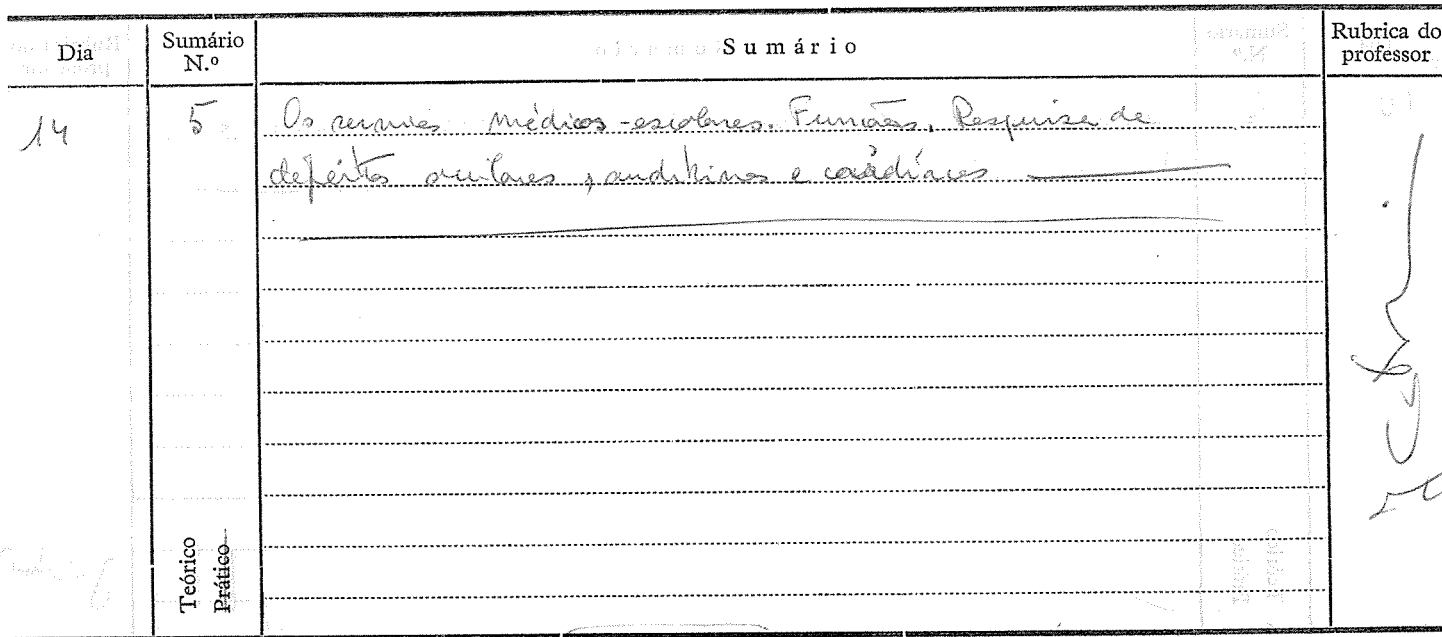 Dia
Sumário N.º
Sumário
Rubrica do professor
14
5
Os serviços médicos-escolares. Funções. Pesquisa de
defeitos oculares, auditivos e cardíacos
Teórico
Prático